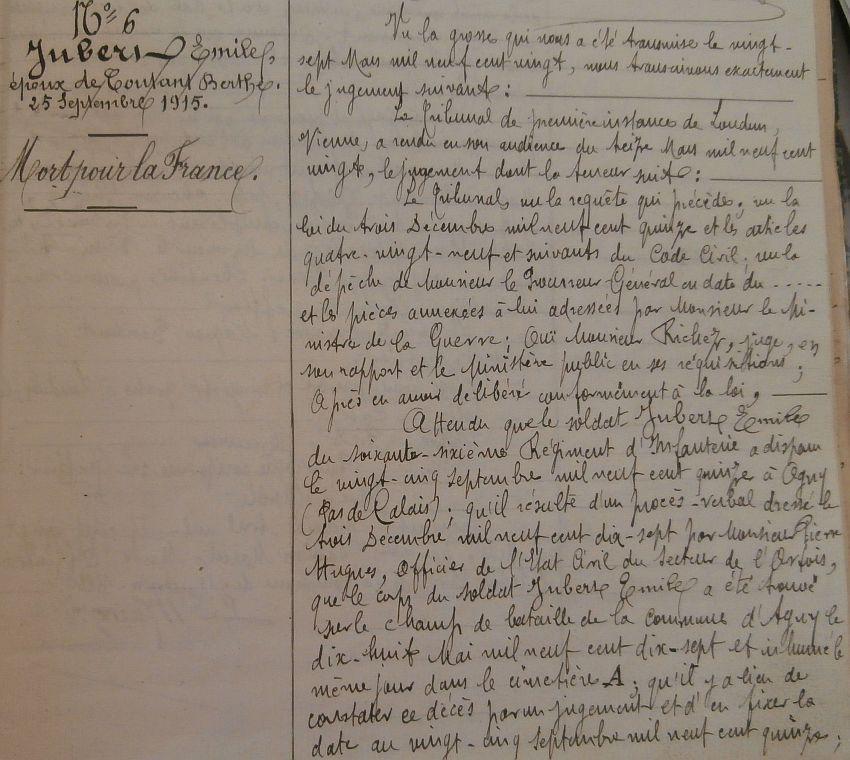 N° 6
Jubert Emile,
époux de Toutant Berthe.
25 Septembre 1915.
Mort pour la France.
Vu la grosse qui nous a été transmise le vingt-
sept Mars mil neuf cent vingt, nous transcrivons exactement
le jugement suivant :
Le Tribunal de première instance de Loudun,
Vienne, a rendu en son audience du treize Mars mil neuf cent
vingt, le jugement dont la teneur suit :
Le Tribunal, vu la requête qui précède, vu la
loi du trois Décembre mil neuf cent quinze et les articles
quatre-vingt-neuf et suivants du Code Civil ; vu la
dépêche de Monsieur le Procureur Général en date du .....
et les pièces annexées à lui adressées par Monsieur le Mi-
nistre de la Guerre ; Ouï Monsieur Richez, juge, en
son rapport et le Ministère public en ses réquisitions ;
Après en avoir délibéré conformément à la loi,
Attendu que le soldat Jubert Emile
du soixante-sixième Régiment d'Infanterie a disparu
le vingt-cinq septembre mil neuf cent quinze à Agny
(Pas de Calais) ; qu'il résulte d'un procès-verbal dressé le
trois Décembre mil neuf cent dix-sept par Monsieur Pierre
Hugues, Officier de l'Etat Civil du Secteur de l'Artois,
que le corps du soldat Jubert Emile a été trouvé
sur le champ de bataille de la commune d'Agny le
dix-huit Mai mil neuf cent dix-sept et inhumé le
même jour dans le cimetière A ; qu'il y a lieu de
constater ce décès par un jugement et d'en fixer la
date au vingt-cinq septembre mil neuf cent quinze ;